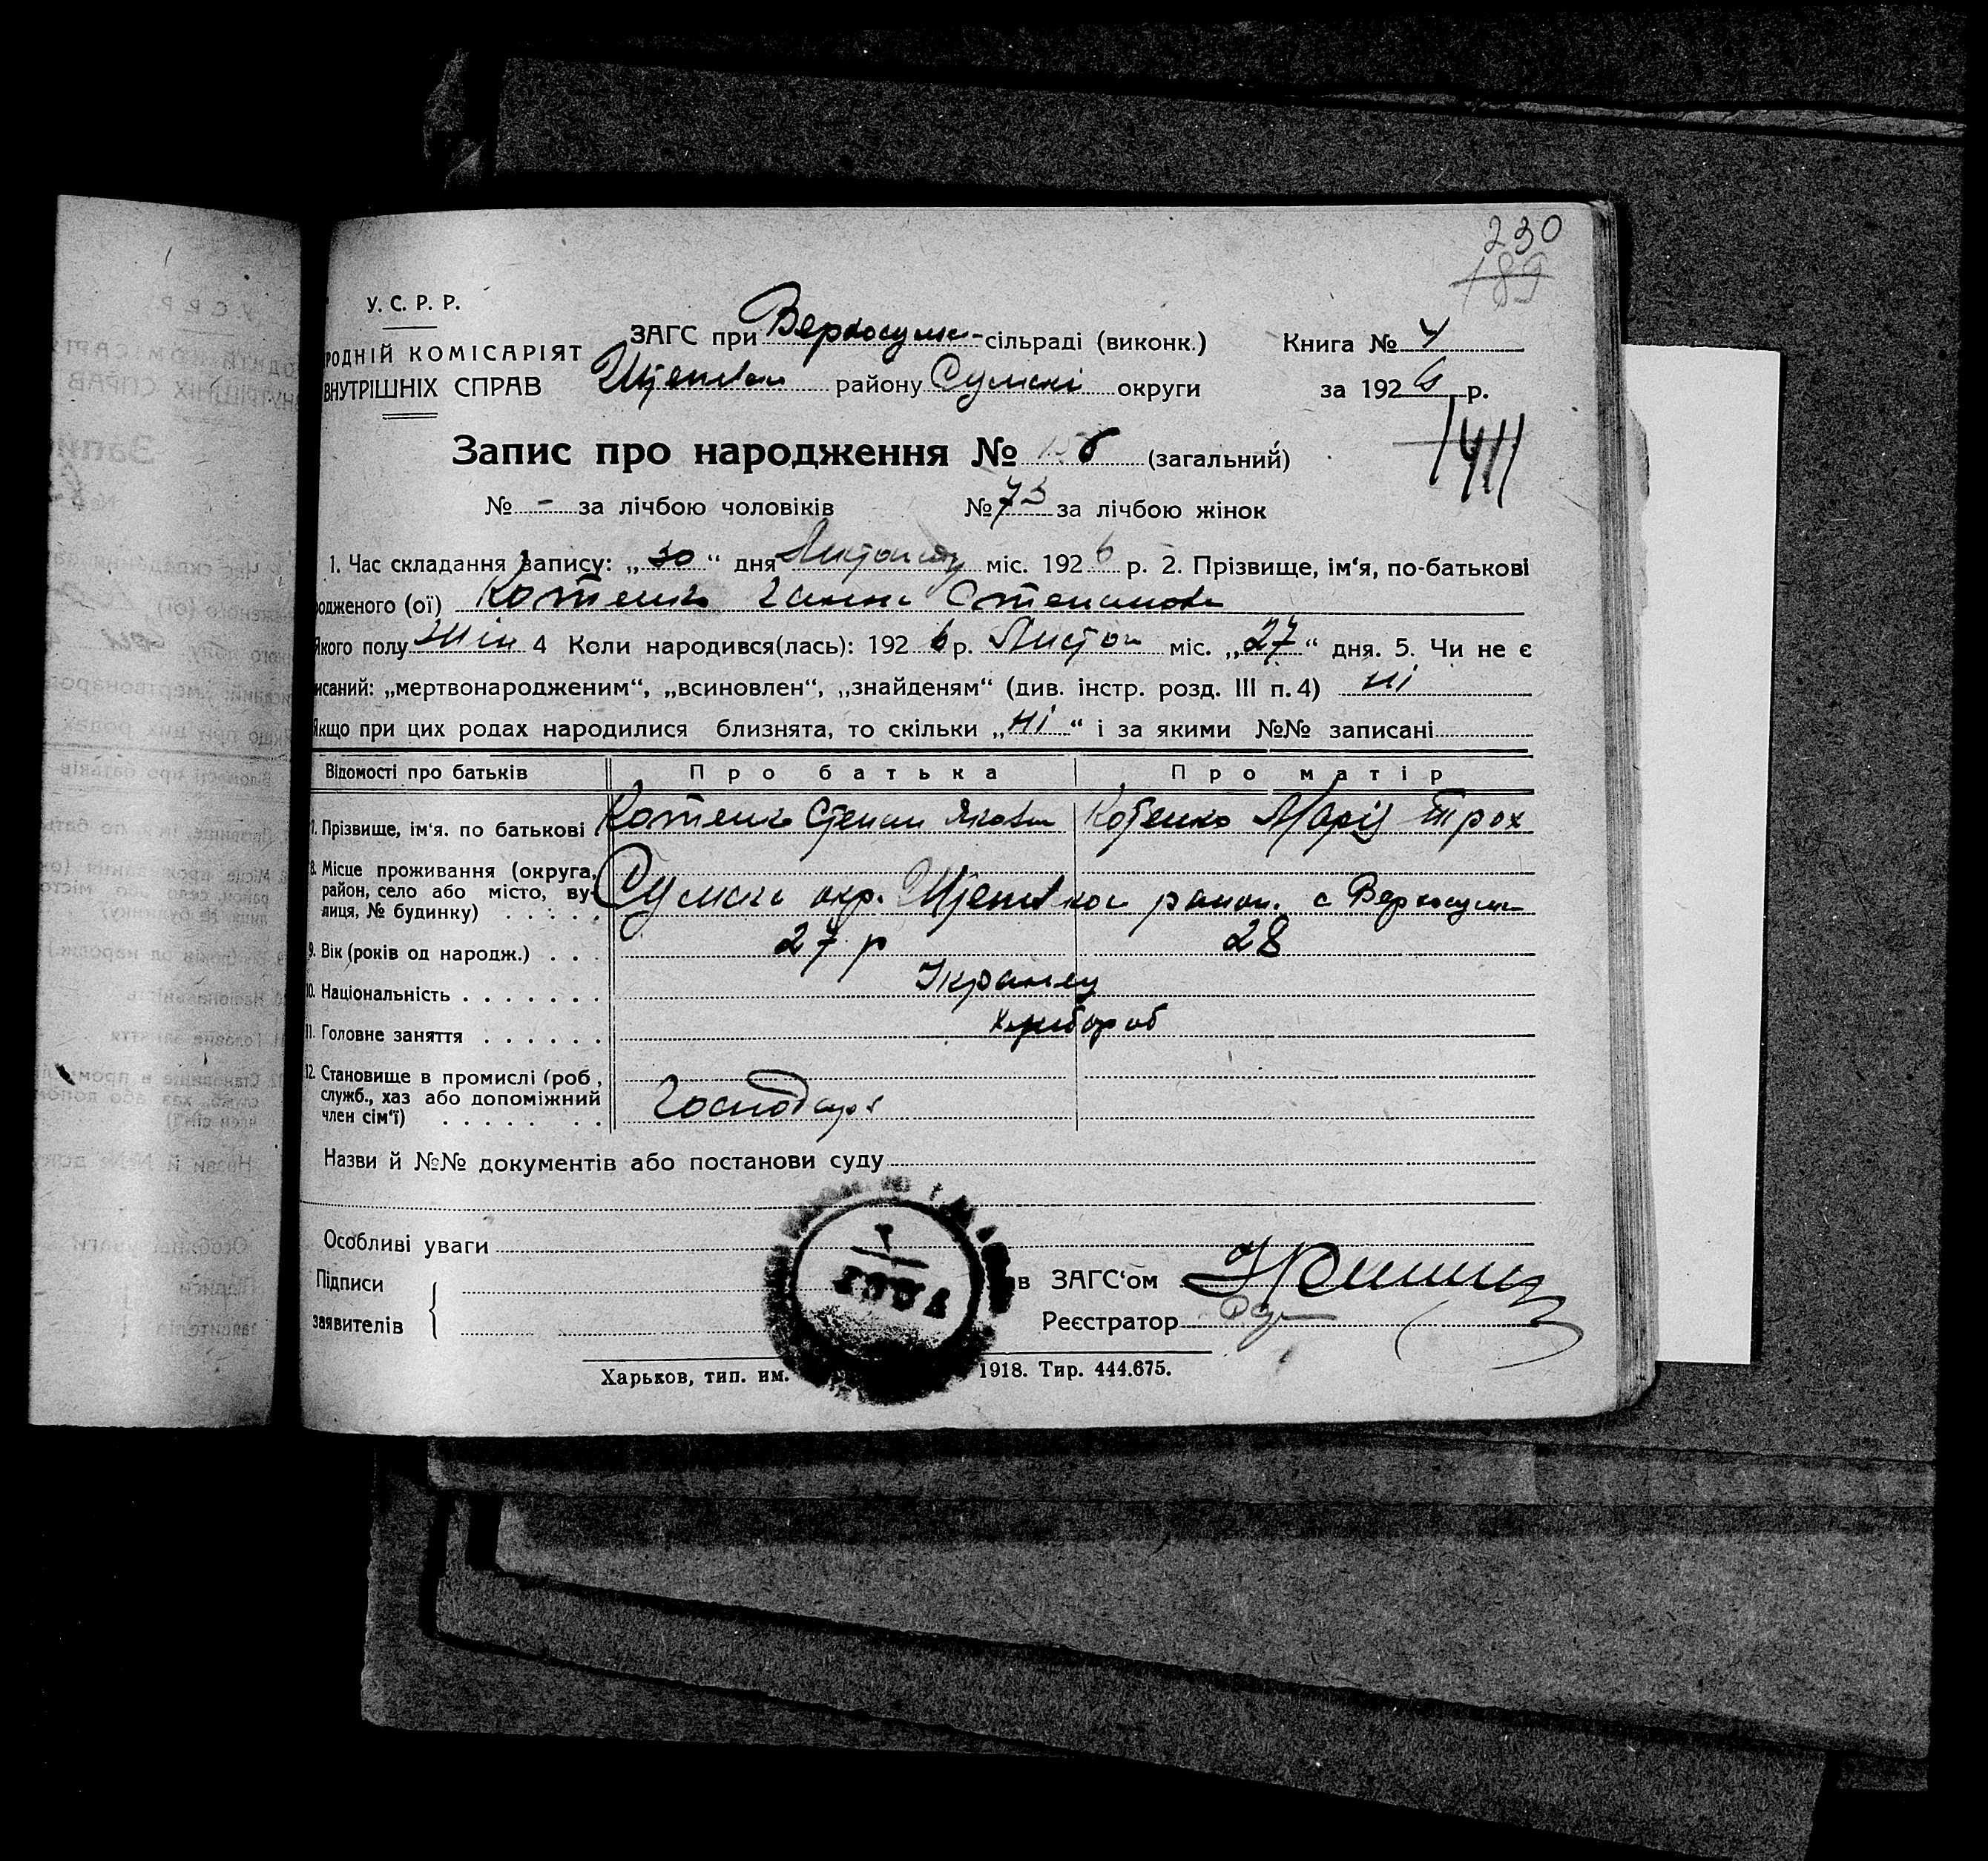 230
189
У. С. Р. Р.
РОДНІЙ КОМІСАРІЯТ
ВНУТРІШНІХ СПРАВ
ЗАГС при Верхосумс-сільраді (виконк.)
району Сумскі округи
Книга № 4
за 1926 р.
1411
Запис про народження № 6 (загальний)
№ - за лічбою чоловіків № 73 за лічбою жінок
1. Час складання запису: „30“ дня Листопаду міс. 1926 р. 2. Прізвище, ім‘я, по-батькові
одженого (ої) Котенко Ганна Степанова
Якого полу Жін 4 Коли народився(лась): 1926 р. Листоп міс. „27“ дня. 5. Чи не є
исаний: „мертвонародженим“, „всиновлен“, „знайденям“ (див. інстр. розд. III п. 4) Ні
Якщо при цих родах народилися близнята, то скільки „Ні“ і за якими №№ записані
Відомості про батьків Про батька Про матір
7. Прізвище, ім‘я. по батькові Котенко Степан Яковл Котенко Марія Трох
8. Місце проживання (округа, район, село або місто, вулиця, № будинку) Сумськ окр. район. с Верхосум
9. Вік (років од народж.) 27 р 28
10. Національність Українец
11. Головне заняття Хлібороб
12. Становище в промислі (роб, служб., хаз або допоміжний член сім‘ї) Господар
Назви й №№ документів або постанови суду
Особливі уваги
Підписи
заявителів
в ЗАГС‘ом
Реєстратор
Харьков, тип. им. 1918. Тир. 444.675.